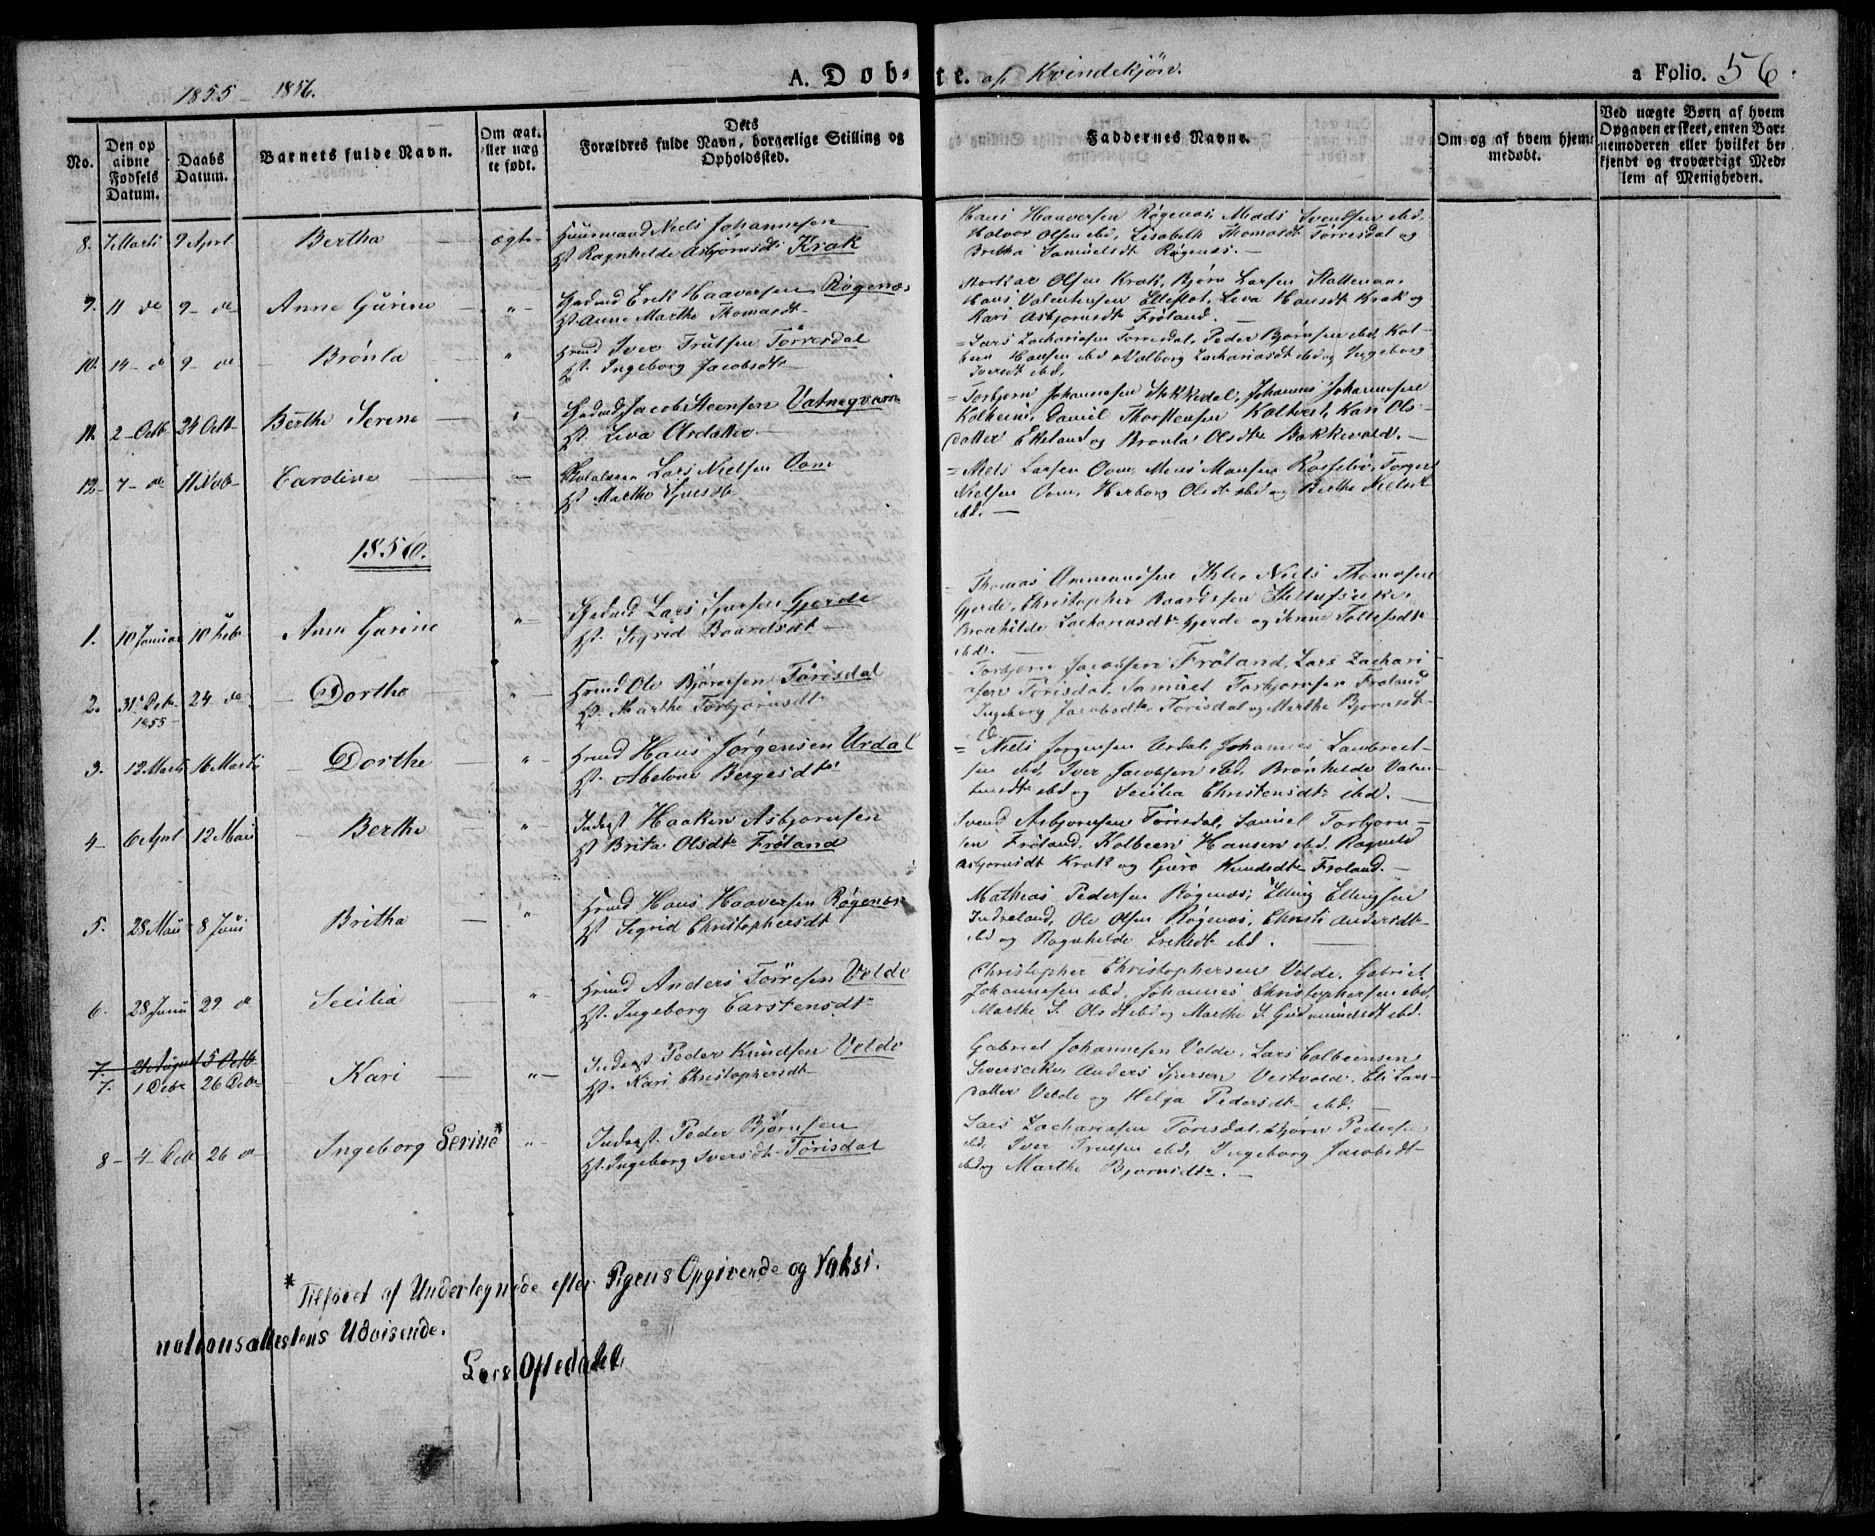 1855 - 1856.
A. Døb-te. af Kvindekjøn.
a Folio. 56.
No.
Den op
givne
Fødsels
Datum.
Daabs
Datum.
Barnets fulde Navn.
Om ægt.
eller uæg
te født.
Dets
Forældres fulde Navn, borgerlige Stilling og
Opholdssted.
Faddernes Navne.
Om og af hvem hjem-
medøbt.
Ved uægte Børn af hvem
Opgaven er skeet, enten Bar-
nemoderen eller hvilket be-
kjendt og troværdigt Med-
lem af Menigheden.
8. 7 Marti 9 April Bertha ægte Huusmand Niels Johannesen
Hst Ragnhilde Asbjørnsdt Krak
Hans Haaversen Røgenæs, Mads Svendsen ibd.
Halvor Olsen ibd, Lisabeth Thomasdt Torresdal og
Bretha Samuelsdt Røgenæs. -
9. 11 do 9 - do Anne Gurine - " - Erik Haaversen Røgenæs
Hst. Anne Marthe Thomasdt -
Storkar Olsen Krak, Bjørn Larsen
Hans Valentinsen Ellestøl, Leva Hansdt Krak og
Kari Asbjørnsdt Frøland. -
10. 14 - do 9 - do - Brønla " Hmd Iver Trulsen Torresdal
Hst. Ingeborg Jacobsdt -
= Lars Zachariasen Torresdal, Peder Bjørnsen ibd, Kol-
been Hansen ibd Valborg Zachariasdt ibd og Ingeborg
Iversdt ibd,
11. 2 - Octb 24 Octb Berthe Serine - " - Jacob Steensen Vatneqvarn
Hst. Leva Olsdatter -
= Torbjørn Johannesen Stokkedal, Johannes Johannesen
Kolheim, Daniel Thorstensen Kaltvedt, Kari Ols-
datter Ekeland og Brønla Olsdt Bakkevold. -
12 - 7 - do 11 Nob - Caroline Lars Nielsen Oom
Hst Marthe
= Niels Larsen Oom, Mons Monsen Torger
Nielsen Oom, Herborg Olsdt ibd og Berthe Nielsdt
ibd. -
1856.
1. 10 Januar 10 Feb Anne Gurine " - Lars Sjursen Gjerde
Hst. Sigrid Baardsdt -
= Thomas Ommundsen Niels Thomasen
Gjerde, Christopher Baardsen
Brønhilde Zachariasdt Gjerde og Serine Tollefsdt
ibd. -
2. 31 Decbr
1855 - 24 do Dorthe " - Hmd Ole Bjørnsen Torisdal
Hst. Marthe Torbjørnsdt -
Torbjørn Jacobsen Frøland, Lars Zachari
asen Torisdal, Samuel Torbjørnsen Frøland
Ingeborg Jacobsdt Torisdal og Marthe Bjørnsdt -
3. 12 Marti 16 Marti - Dorthe " - Hmd Hans Jørgensen Urdal
Hst. Abelone Bergesdt
= Niels Jørgensen Urdal, Johannes Lambrect-
sen ibd, Iver Jacobsen ibd, Brønhilde Valen-
tinsdt ibd og Secilia Christensdt ibd. -
4 - 6 April 12 Mai Berthe " - Inderst Haaken Asbjørnsen
Hst Brita Olsdt Frøland
Svend Asbjørnsen Torisdal, Samuel Torbjørn-
sen Frøland, Kolbeen Hansen ibd, Ragnild
Asbjørnsdt Krak og Guro Knudsdt Frøland. -
5. 28 Mai 8 Juni Bretha " Hmd Hans Haaversen Røgenæs
Hst Sigrid Christophersdt
Mathias Pedersen Røgenæs, Elling Ellingsen
Indreland, Ole Olsen Røgenæs, Christi Andersdt -
ibd og Ragnhilde Eriksdt ibd. -
6. 28 Juni 29 do Secilia - " - Hmd Anders Torresen Velde
Hst. Ingeborg Carstensdt
Christopher Christophersen Velde, Gabriel
Johannesen ibd, Johannes Christophersen ibd,
Marthe S. Olsdt ibd og Marthe S. Gudmundsdt ibd.
7. 21 August 5 Octb
7. 1 Decbr 26 Decbr Kari - " - Inderst Peder Knudsen Velde
Hst. Kari Christophersdt
Gabriel Johannesen Velde, Lars Colbeensen
Anders Sjursen Vestvold, Eli Lars-
datter Velde og Helga Pedersdt ibd. -
8 - 4 - Deb 26 do Ingeborg Serine* " - Inderst. Peder Bjørnsen
Hst. Ingeborg Iversdt - Torisdal
Lars Zachariasen Torisdal, Bjørn Pedersen
ibd, Iver Trulsen ibd, Ingeborg Jacobsdt -
ibd og Marthe Bjørnsdt. -
* Tilføiet af Undertegnede efter Pigens Opgivende og Vaksi-
nationsattestens Udvisende.
Lars Oftedal